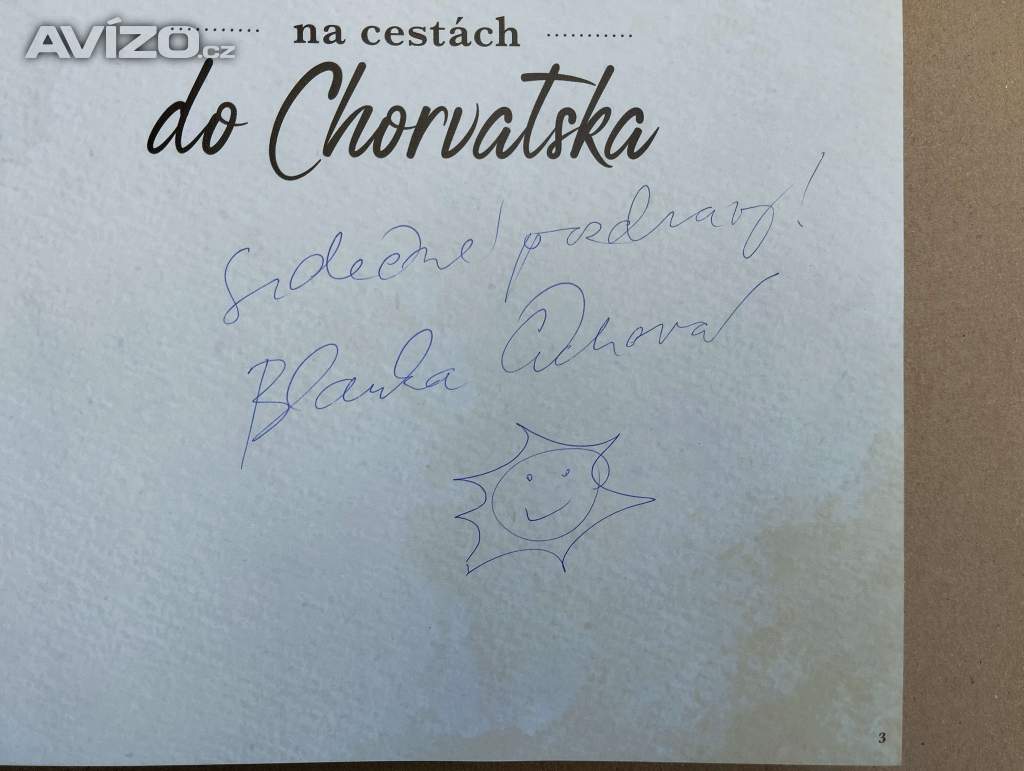 AVÍZO.cz
na cestách
do Chorvatska
Srdečné pozdravy!
Blanka
3